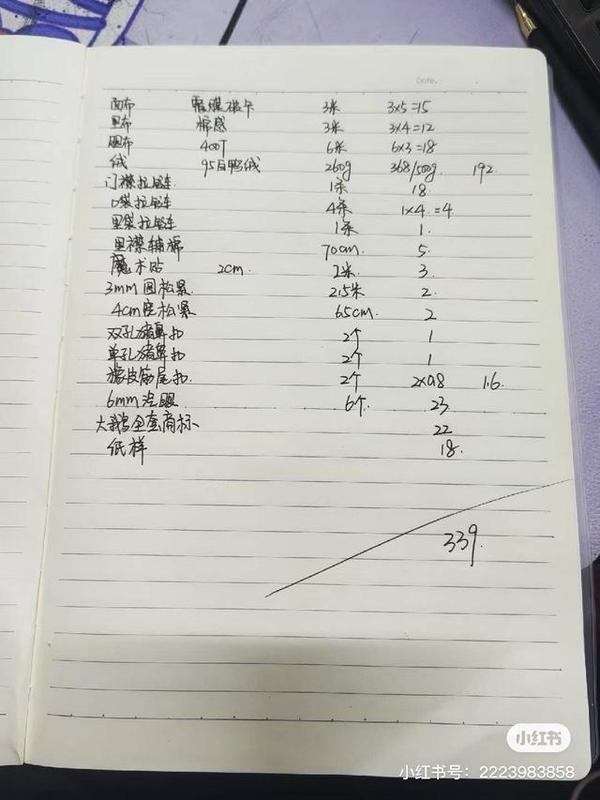 Date.
面布 3米 3x5=15
里布 棉感 3米 3x4=12
胆布 400T 6米 6x3=18
绒 95白鸭绒 260g 368/500g 192
门襟拉链 1条 18
口袋拉链 4条 1x4=4
里袋拉链 1条 1.
里襟辅棉 70cm. 5.
魔术贴 2cm. 2米 3.
3mm圆松紧. 2.5米 2.
4cm宽松紧. 65cm. 2
双孔猪鼻扣 2个 1
单孔猪鼻扣 2个 1
橡皮筋尾扣. 2个 2x0.8 1.6.
6mm汽眼 6个. 23
大鹅全套商标 22
纸样 18.
339.
小红书
小红书号：2223983858